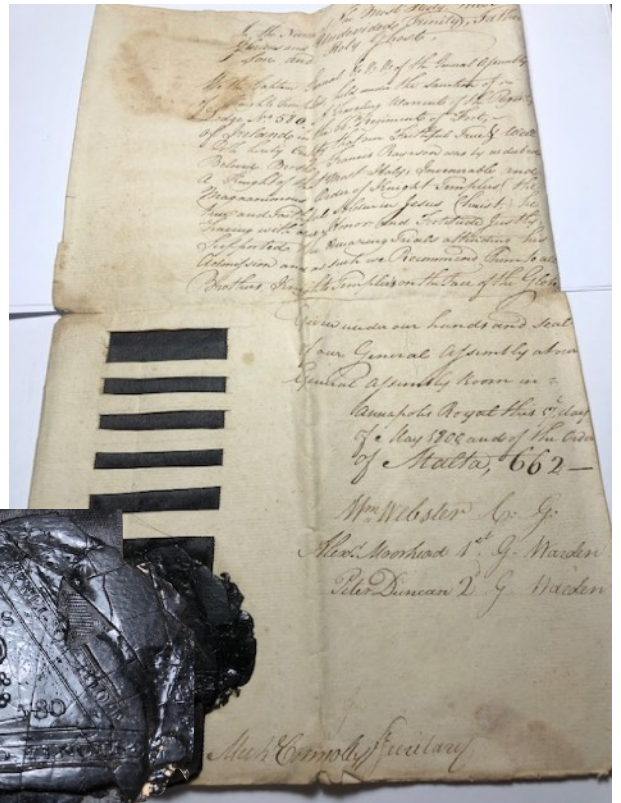 In the Name of the Most Holy, and
Undivided Trinity, Father
Son and Holy Ghost.
We the Captain General &c &c &c of the General Assembly
of Knights Templars held under the sanction of
Lodge No 580 of Registry
of Ireland in the Regiment of Foot,
Do hereby Certify that our Faithful True & Well
Beloved Brother Francis was by us dubbed
A Knight of the Most Holy, Invincible and
Magnanimous Order of Knight Templars the
true and Faithful Soldiers of Jesus Christ; he
having with Honor and Fortitude Justly
Supported the Amazing Trials attending his
Admission and as such we Recommend him to all
Brothers Knights Templars on the Face of the Globe
Given under our hands and Seal
of our General Assembly at our
General Assembly Room in
Annapolis Royal this day
of May and of the Order
of Malta, 662
Wm Webster C. G.
Alexr Moorhead 1st G. Warden
Peter Duncan 2 G Warden
Michl Connolly Secretary